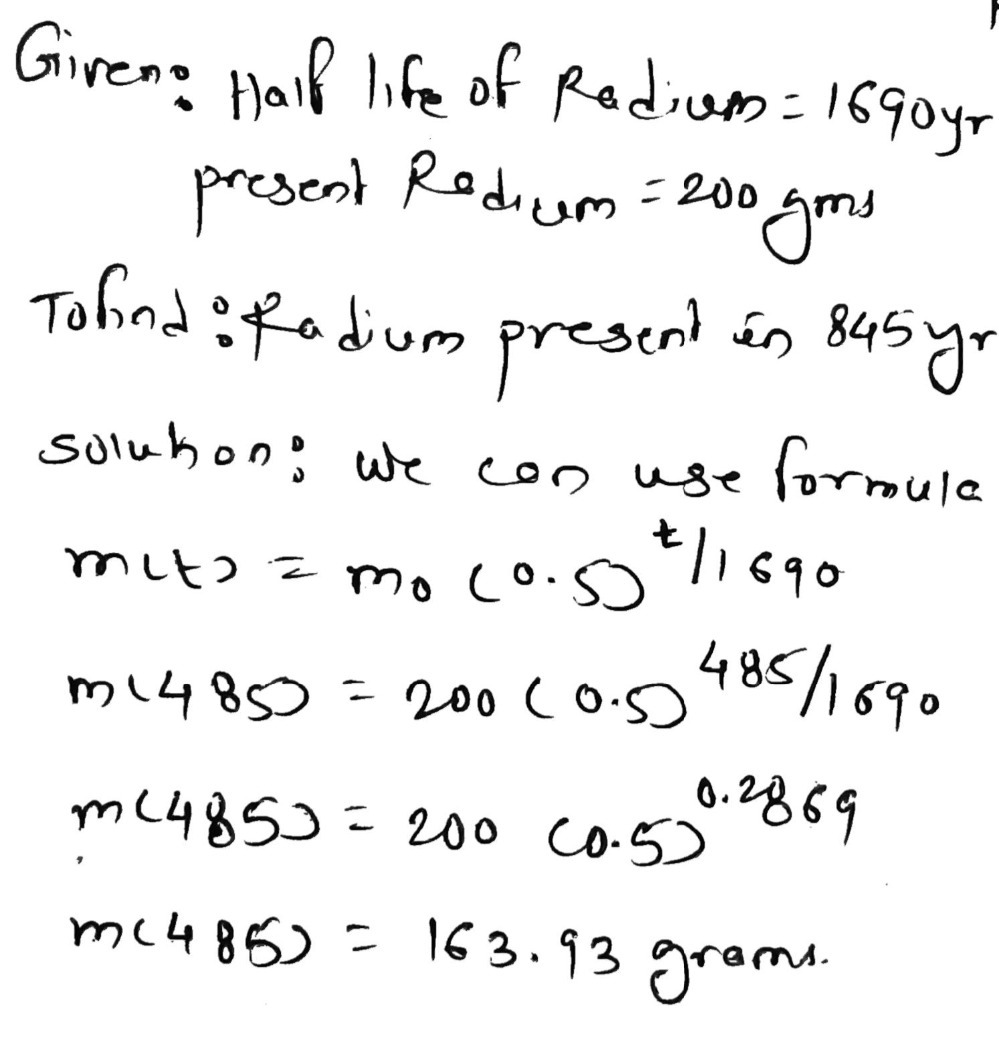 Given: Half life of Radium = 1690yr
present Radium = 200 gms
To find: Radium present in 845 yr
solution: we can use formula
m(t) = m₀ (0.5)^t/1690
m(485) = 200 (0.5)^485/1690
m(485) = 200 (0.5)^0.2869
m(485) = 163.93 grams.